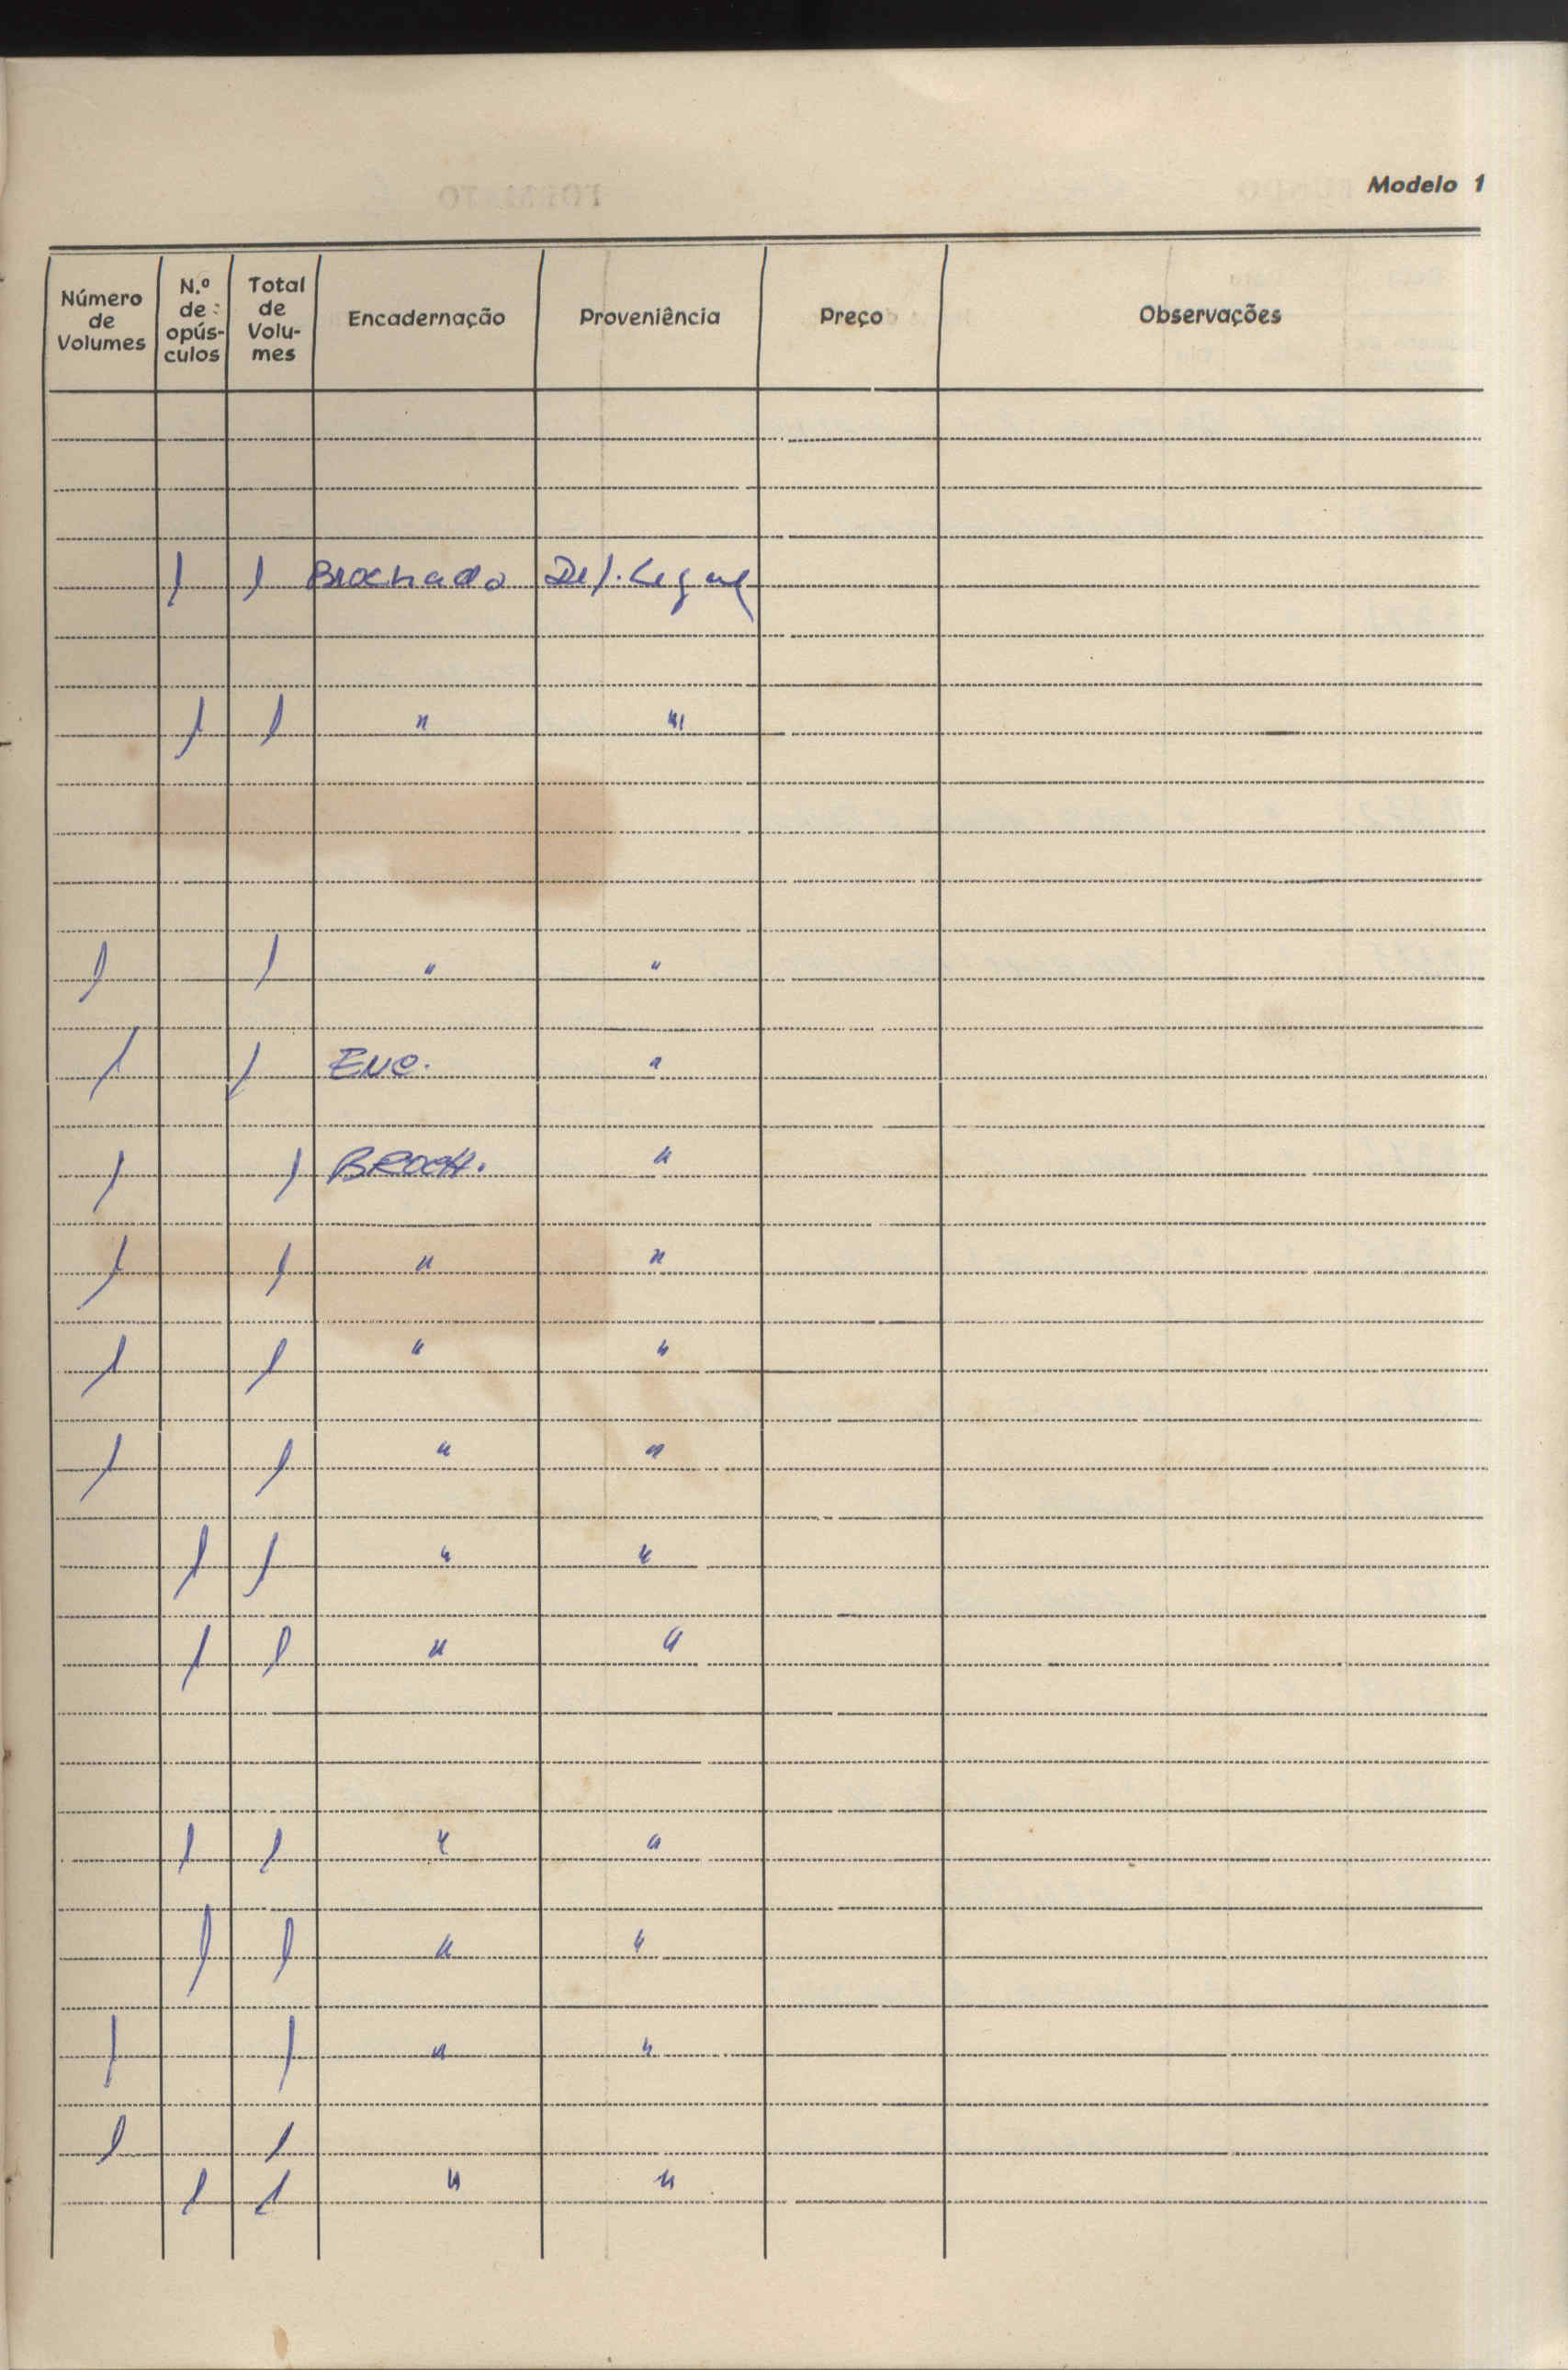 Modelo 1
Número de Volumes | N.º de opúsculos | Total de Volumes | Encadernação | Proveniência | Preço | Observações
1 1 Brochado Dep. Legal
1 1 " "
1 1 " "
1 1 ENC. "
1 1 BROCH. "
1 1 " "
1 1 " "
1 1 " "
1 1 " "
1 1 " "
1 1 " "
1 1 " "
1 1 " "
1 1
1 1 " "